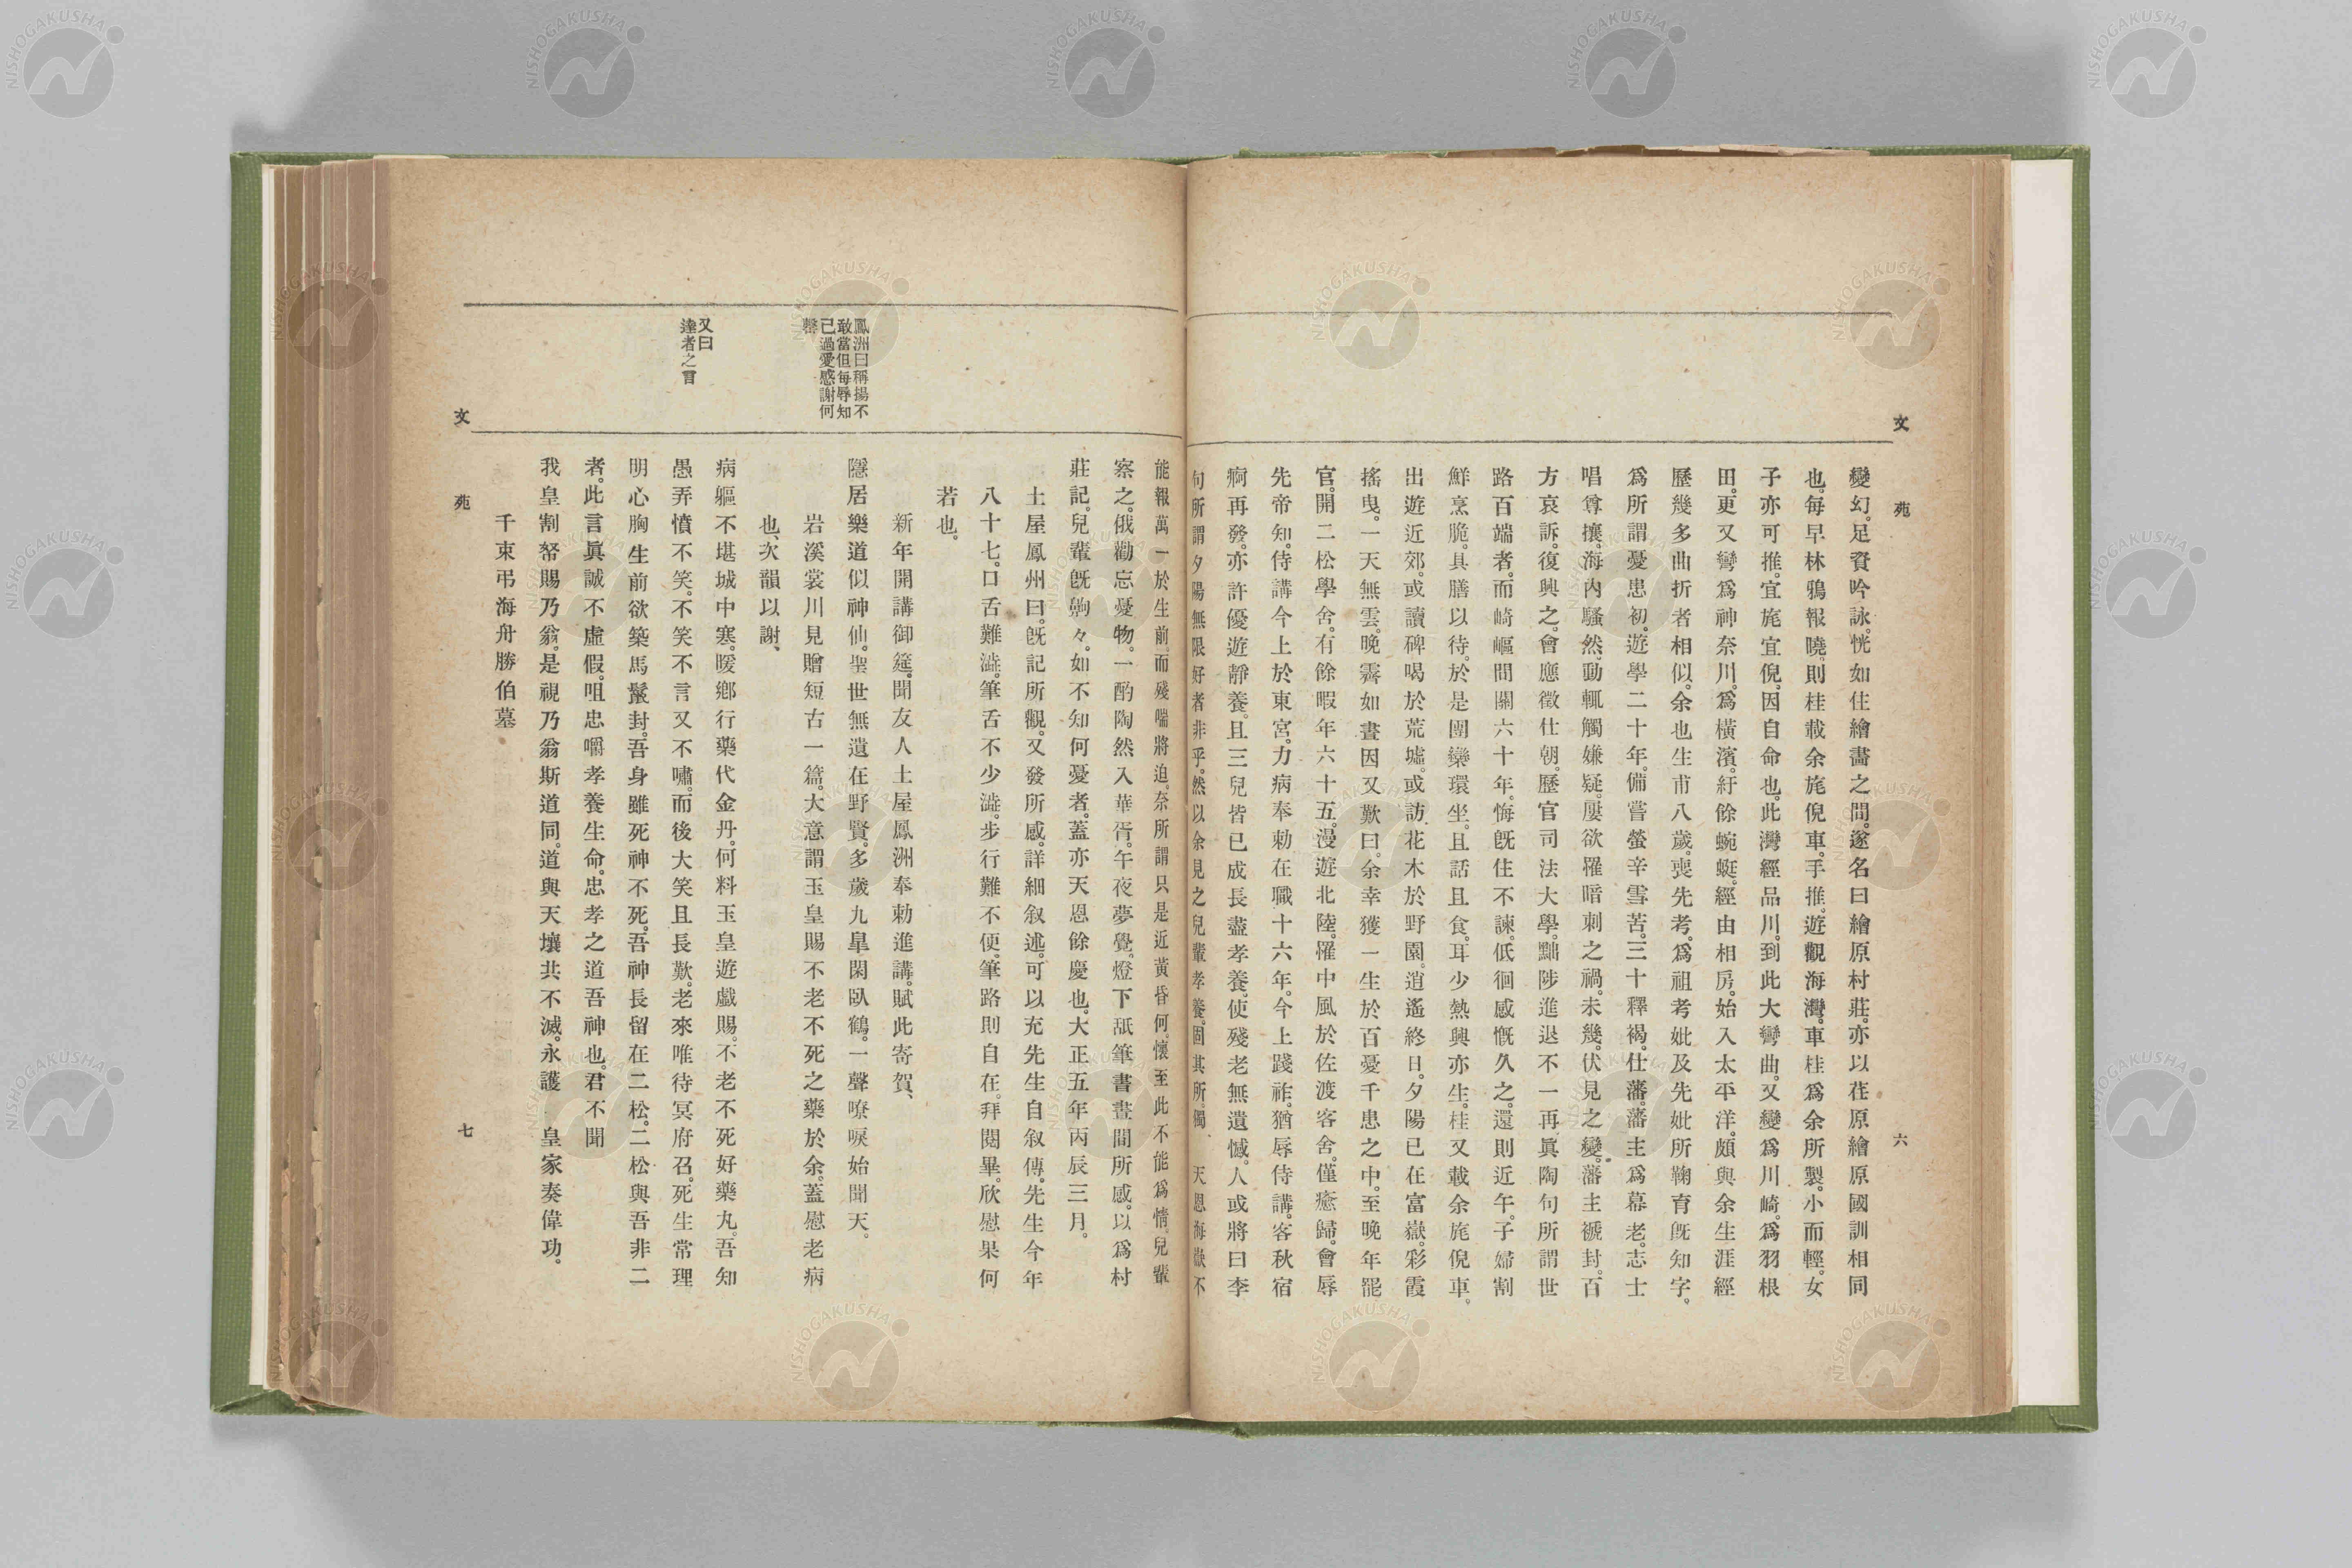 文苑
六
變幻。足資吟詠。恍如住繪畫之間。遂名曰繪原村莊。亦以荏原繪原國訓相同
也。每早林鴉報曉。則桂載余旄倪車。手推。遊觀海灣。車桂爲余所製。小而輕。女
子亦可推。宜旄宜倪。因自命也。此灣經品川。到此大彎曲。又變爲川崎。爲羽根
田。更又彎爲神奈川。爲橫濱。紆餘蜿蜒。經由相房。始入太平洋。頗與余生涯經
歷幾多曲折者相似。余也生甫八歲。喪先考。爲祖考妣及先妣所鞠育。旣知字。
爲所謂憂患初。遊學二十年。備嘗螢辛雪苦。三十釋褐。仕藩。藩主爲幕老。志士
唱尊攘。海內騷然。動輒觸嫌疑。屢欲罹暗刺之禍。未幾。伏見之變。藩主褫封。百
方哀訴。復興之。會應徵仕朝。歷官司法大學。黜陟進退不一再眞陶句所謂世
路百端者。而崎嶇間關六十年。悔旣往不諫。低徊感慨久之。還則近午。子婦割
鮮烹脆。具膳以待。於是團欒環坐。且話且食。耳少熱興亦生。桂又載余旄倪車。
出遊近郊。或讀碑碣於荒墟。或訪花木於野園。逍遙終日。夕陽已在富嶽。彩霞
搖曳。一天無雲。晚霽如畫因又歎曰。余幸獲一生於百憂千患之中。至晚年罷
官。開二松學舍。有餘暇年六十五。漫遊北陸。罹中風於佐渡客舍。僅癒歸。會辱
先帝知。侍講今上於東宮。力病奉勅在職十六年。今上踐祚。猶辱侍講。客秋宿
痾再發。亦許優遊靜養。且三兒皆已成長盡孝養。使殘老無遺憾。人或將曰李
句所謂夕陽無限好者非乎。然以余見之兒輩孝養。固其所。獨 天恩海嶽不
能報萬一於生前。而殘喘將迫。奈所謂只是近黃昏何。懷至此不能爲情。兒輩
察之。俄勸忘憂物。一酌陶然入華胥。午夜夢覺。燈下舐筆書晝間所感。以爲村
莊記。兒輩旣齁々。如不知何憂者。蓋亦天恩餘慶也。大正五年丙辰三月。
土屋鳳州曰。旣記所觀。又發所感。詳細叙述。可以充先生自叙傳。先生今年
八十七。口舌難澁。筆舌不少澁。步行難不便。筆路則自在。拜閱畢。欣慰果何
若也。
新年開講御筵。聞友人土屋鳳洲奉勅進講。賦此寄賀、
隱居樂道似神仙。聖世無遺在野賢。多歲九皐閑臥鶴。一聲嘹唳始聞天。
岩溪裳川見贈短古一篇。大意謂玉皇賜不老不死之藥於余。蓋慰老病
也、次韻以謝、
病軀不堪城中寒。暖鄕行藥代金丹。何料玉皇遊戲賜。不老不死好藥丸。吾知
愚弄憤不笑。不笑不言又不嘯。而後大笑且長歎。老來唯待冥府召。死生常理
明心胸生前欲築馬鬣封。吾身雖死神不死。吾神長留在二松。二松與吾非二
者。此言眞誠不虛假。咀忠嚼孝養生命。忠孝之道吾神也。君不聞
我皇割帑賜乃翁。是視乃翁斯道同。道與天壤共不滅。永護 皇家奏偉功。
千束弔海舟勝伯墓
鳳洲曰稱揚不
敢當但每辱知
己過愛感謝何
罄
又曰
達者之言
文苑
七